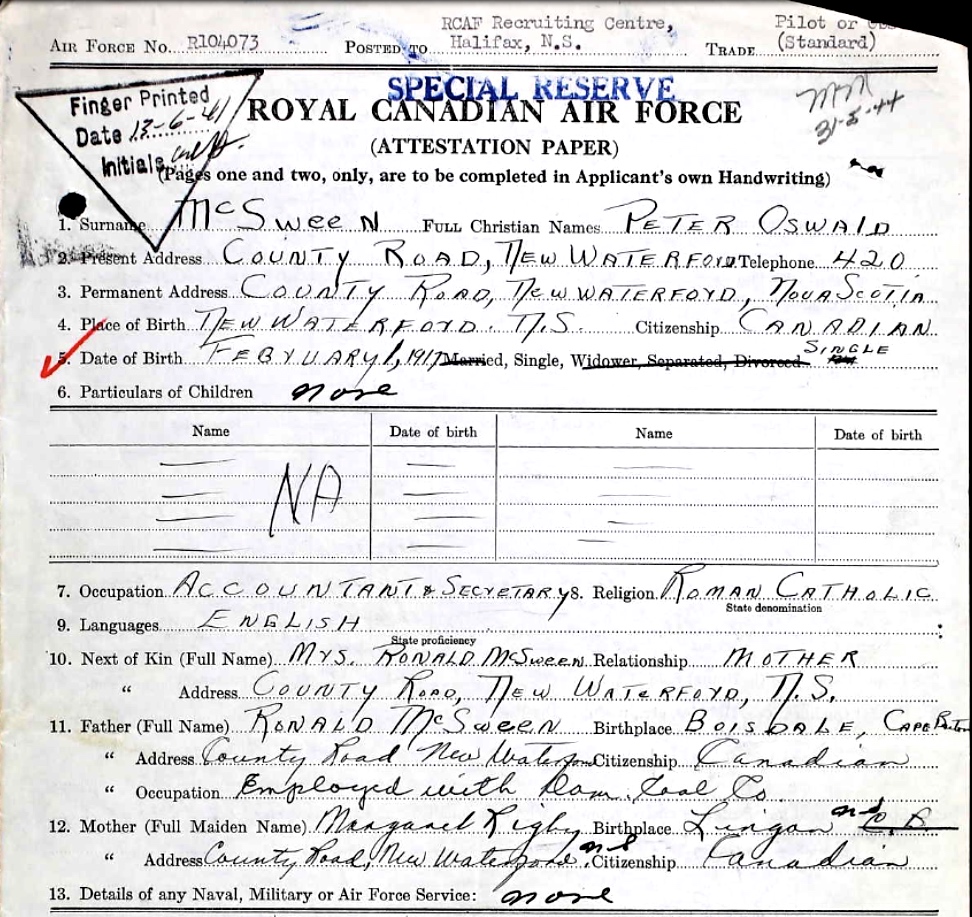 RCAF Recruiting Centre, Pilot or
AIR FORCE NO. R104073 POSTED TO Halifax, N.S. TRADE (Standard)
SPECIAL RESERVE
Finger Printed
Date 13-6-41
Initials
ROYAL CANADIAN AIR FORCE
31-5-44
(ATTESTATION PAPER)
(Pages one and two, only, are to be completed in Applicant's own Handwriting)
1. Surname McSween FULL Christian Names PETER OSWALD
2. Present Address COUNTY ROAD, NEW WATERFORD Telephone 420
3. Permanent Address COUNTY ROAD, NEW WATERFORD, NOVA SCOTIA
4. Place of Birth NEW WATERFORD. N.S. Citizenship CANADIAN
5. Date of Birth FEBRUARY 1, 1917 Married, Single, Widower, Separated, Divorced SINGLE
6. Particulars of Children none
Name Date of birth Name Date of birth
NA
7. Occupation ACCOUNTANT & SECRETARY 8. Religion ROMAN CATHOLIC
State denomination
9. Languages ENGLISH
State proficiency
10. Next of Kin (Full Name) MRS. RONALD McSWEEN Relationship MOTHER
" Address COUNTY ROAD, NEW WATERFORD, N.S.
11. Father (Full Name) RONALD McSWEEN Birthplace BOISDALE, CAPE Breton
" Address County Road New Waterford Citizenship Canadian
" Occupation Employed with Dom. Coal Co.
12. Mother (Full Maiden Name) Margaret Rigby Birthplace Lingan C.B.
" Address County Road, New Waterford N.S. Citizenship Canadian
13. Details of any Naval, Military or Air Force Service: none